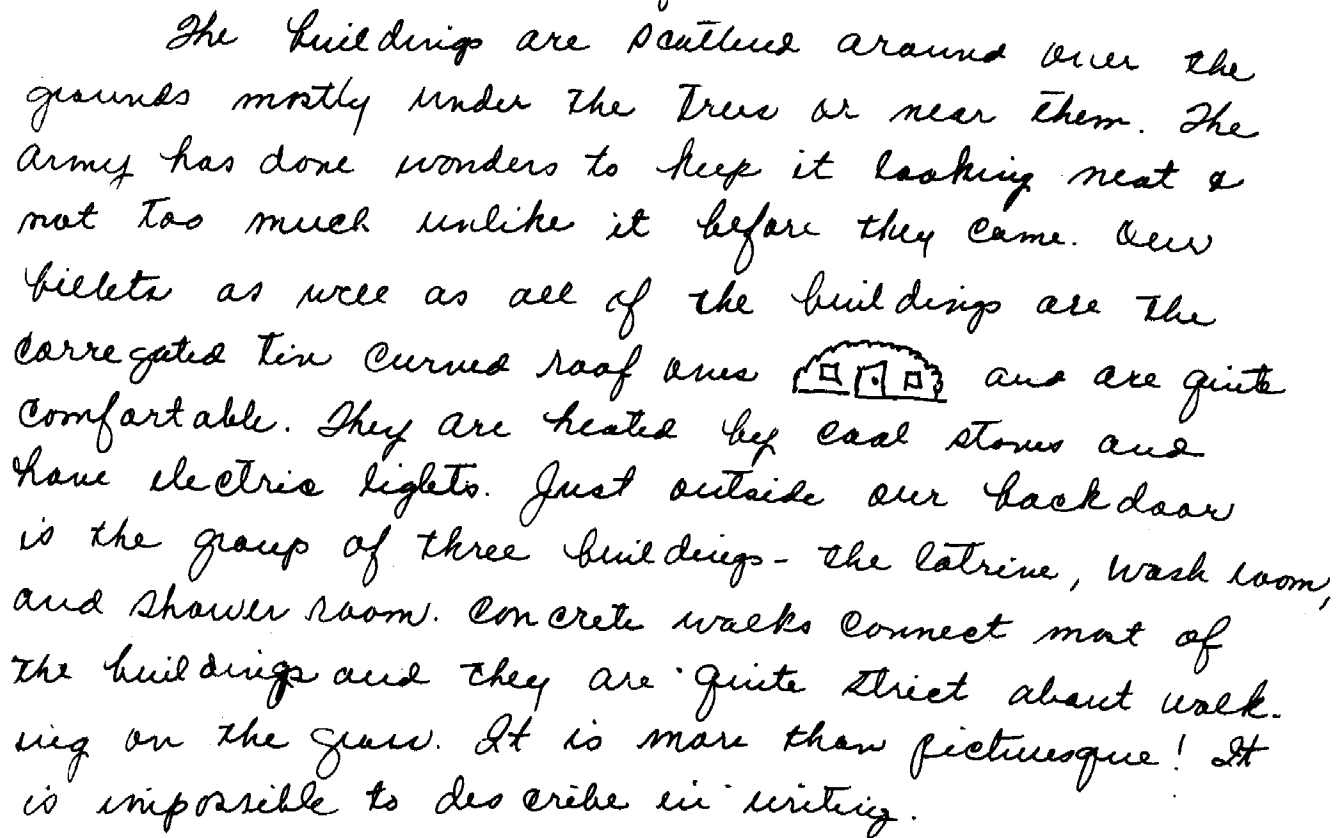 The buildings are scattered around over the
grounds mostly under the trees or near them. The
army has done wonders to keep it looking neat &
not too much unlike it before they came. Our
billets as well as all of the buildings are the
corregated tin curved roof ones and are quite
comfortable. They are heated by coal stoves and
have electric lights. Just outside our backdoor
is the group of three buildings - the latrine, wash room,
and shower room. Concrete walks connect most of
the buildings and they are quite strict about walk-
ing on the grass. It is more than picturesque! It
is impossible to describe in writing.